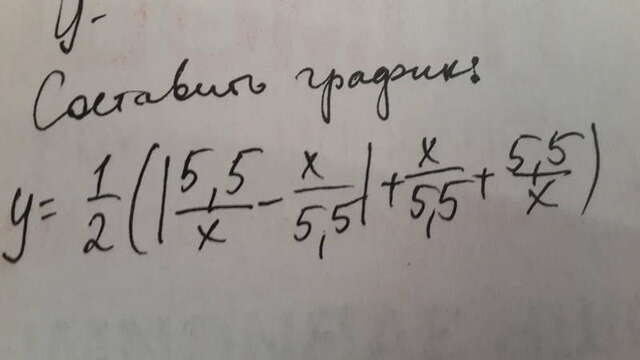 y-
Составить график:
y = 1/2 (|5,5/x - x/5,5| + x/5,5 + 5,5/x)